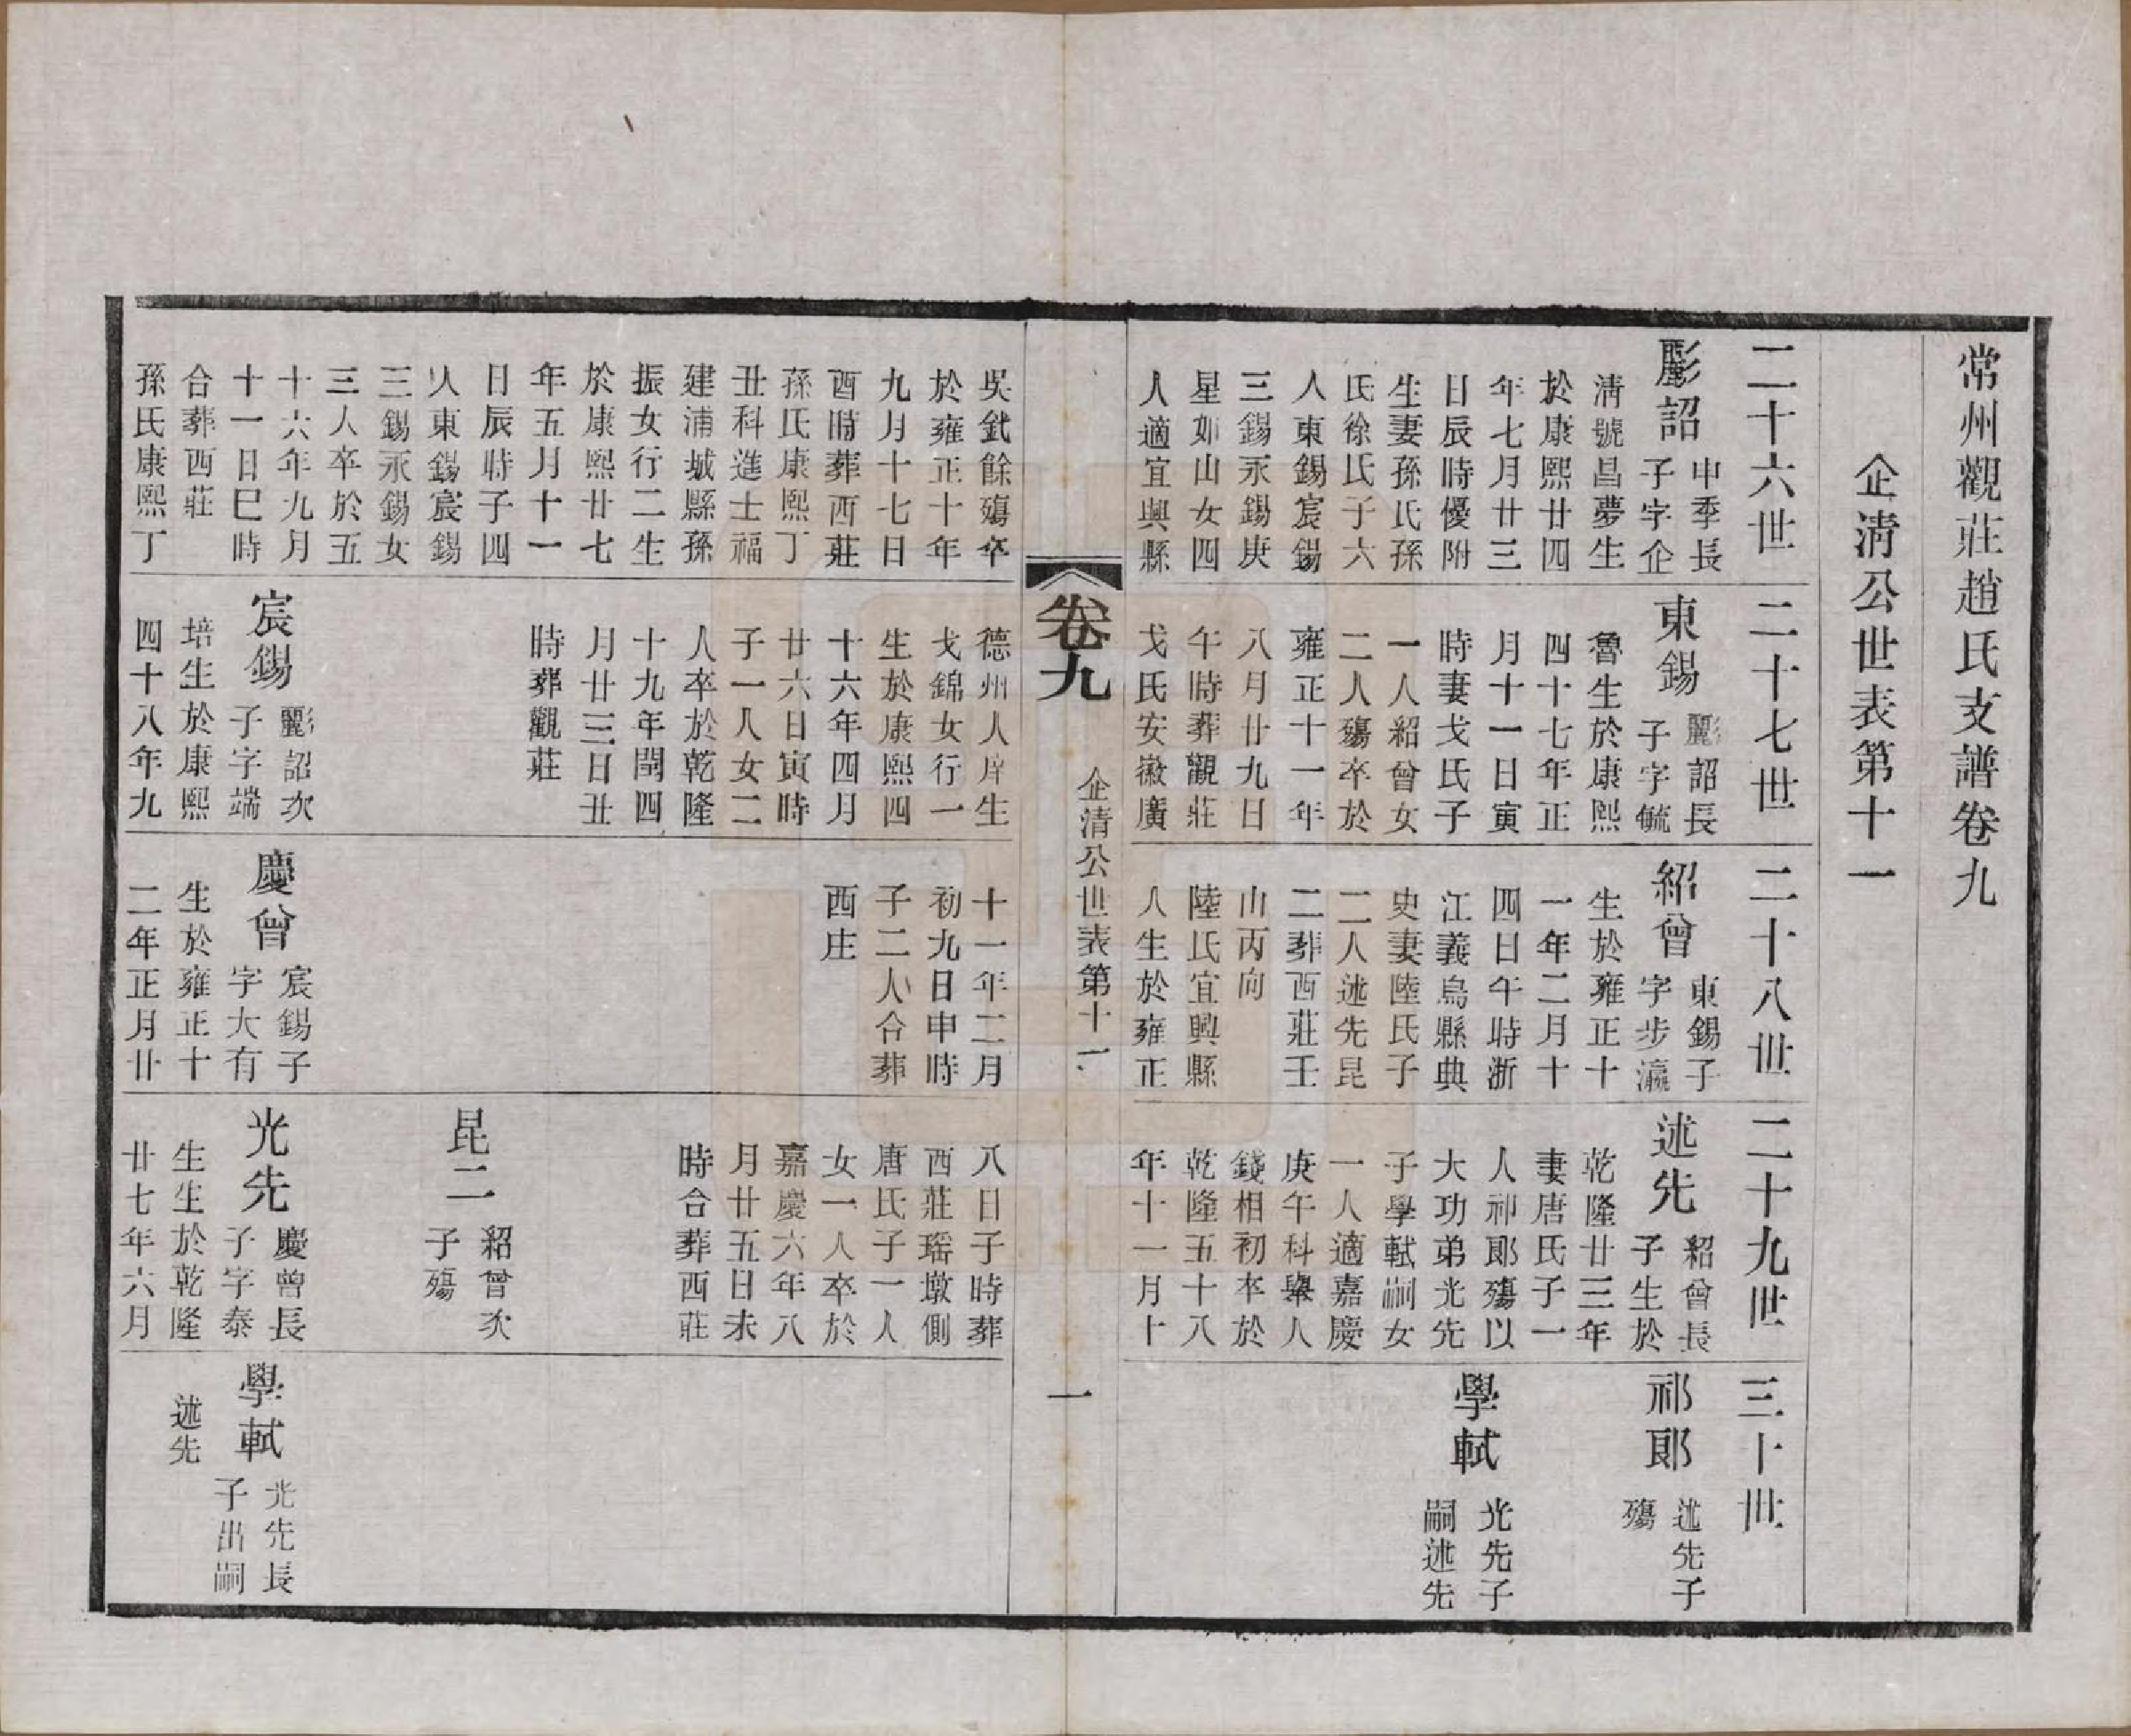 常州觀莊趙氏支譜卷九
企清公世表第十一
二十六世
彲詔
申季長
子字企
清號昌夢生
於康熙廿四
年七月廿三
日辰時優附
生妻孫氏孫
氏徐氏子六
人東錫宸錫
三錫永錫庚
星如山女四
人適宜興縣
二十七世
東錫
彲詔長
子字毓
魯生於康熙
四十七年正
月十一日寅
時妻戈氏子
一人紹曾女
二人殤卒於
雍正十一年
八月廿九日
午時葬觀莊
戈氏安徽廣
二十八世
紹曾
東錫子
字步瀛
生於雍正十
一年二月十
四日午時浙
江義烏縣典
史妻陸氏子
二人述先昆
二葬西莊壬
山丙向
陸氏宜興縣
人生於雍正
二十九世
述先
紹曾長
子生於
乾隆廿三年
妻唐氏子一
人祁郎殤以
大功弟光先
子學軾嗣女
一人適嘉慶
庚午科舉人
錢相初卒於
乾隆五十八
年十一月十
三十世
祁郎
述先子
殤
學軾
光先子
嗣述先
卷九
企清公世表第十一
一
吳釴餘殤卒
於雍正十年
九月十七日
酉時葬西莊
孫氏康熙丁
丑科進士福
建浦城縣孫
振女行二生
於康熙廿七
年五月十一
日辰時子四
人東錫宸錫
三錫永錫女
三人卒於五
十六年九月
十一日巳時
合葬西莊
孫氏康熙丁
德州人庠生
戈錦女行一
生於康熙四
十六年四月
廿六日寅時
子一人女二
人卒於乾隆
十九年閏四
月廿三日丑
時葬觀莊
宸錫
彲詔次
子字端
培生於康熙
四十八年九
十一年二月
初九日申時
子二人合葬
西庄
慶曾
宸錫子
字大有
生於雍正十
二年正月廿
八日子時葬
西莊瑶墩側
唐氏子一人
女一人卒於
嘉慶六年八
月廿五日未
時合葬西莊
昆二
紹曾次
子殤
光先
慶曾長
子字泰
生生於乾隆
廿七年六月
學軾
光先長
子出嗣
述先